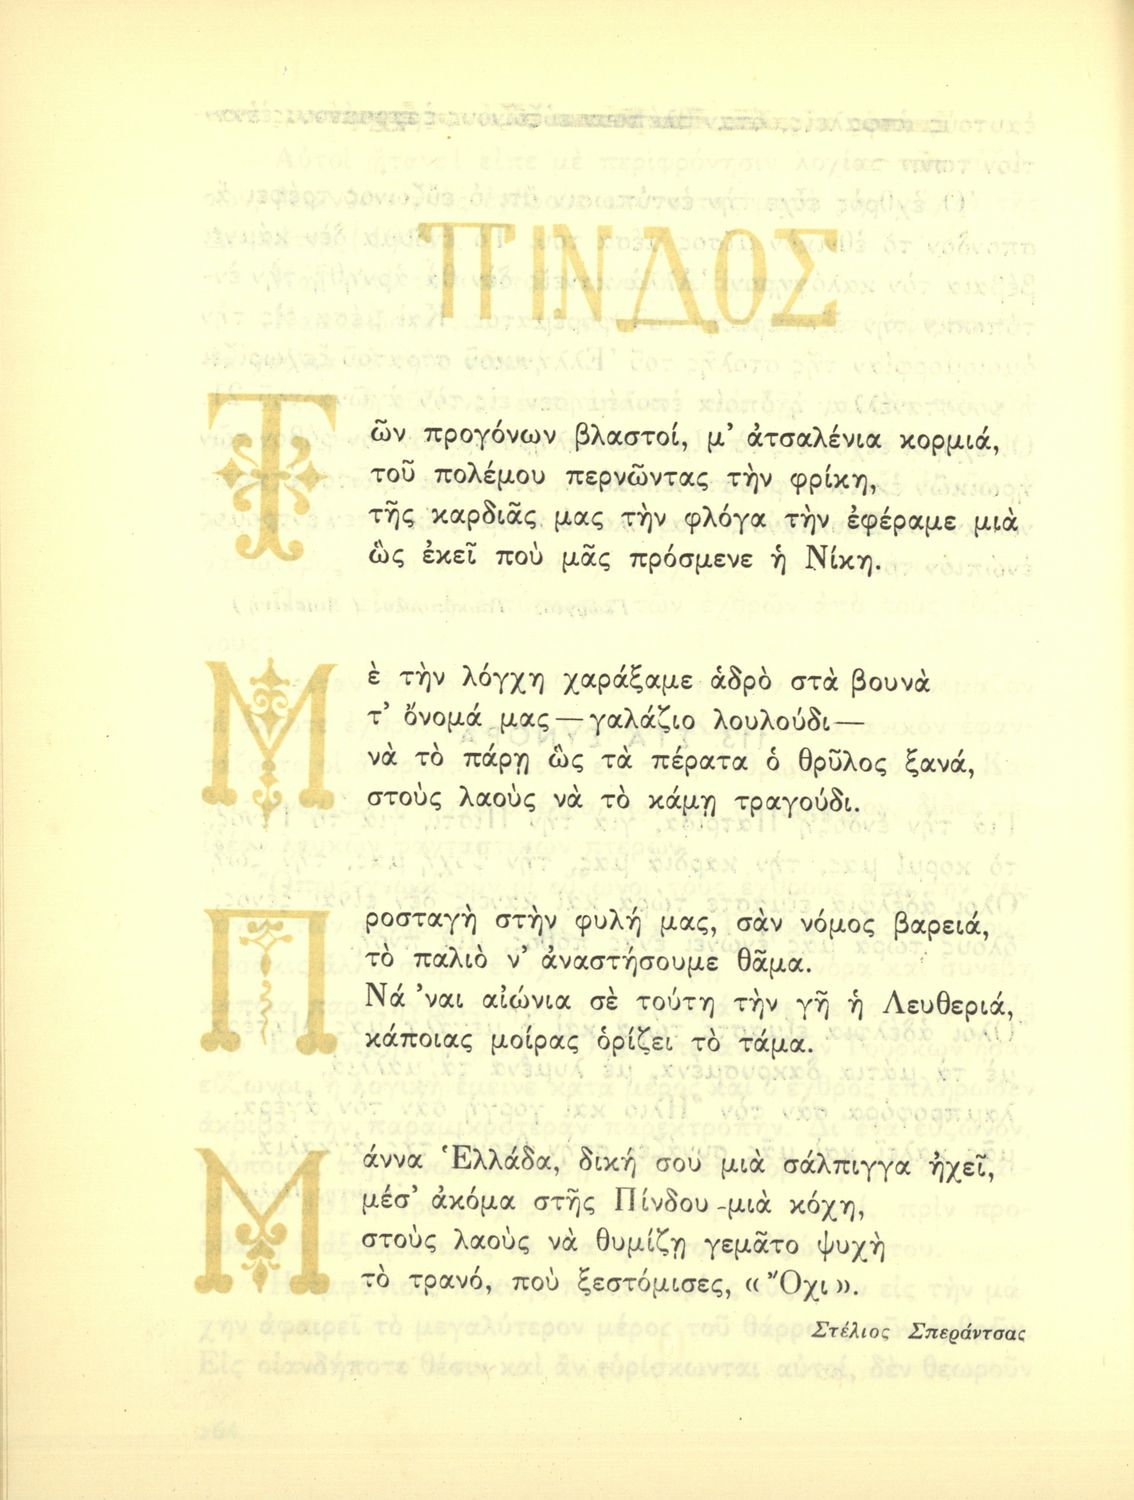 ΠΙΝΔΟΣ
Τῶν προγόνων βλαστοί, μ' ἀτσαλένια κορμιά,
τοῦ πολέμου περνῶντας τὴν φρίκη,
τῆς καρδιᾶς μας τὴν φλόγα τὴν ἐφέραμε μιὰ
ὣς ἐκεῖ ποὺ μᾶς πρόσμενε ἡ Νίκη.
Μὲ τὴν λόγχη χαράξαμε ἁδρὸ στὰ βουνὰ
τ' ὄνομά μας — γαλάζιο λουλούδι —
νὰ τὸ πάρῃ ὣς τὰ πέρατα ὁ θρῦλος ξανά,
στοὺς λαοὺς νὰ τὸ κάμῃ τραγούδι.
Προσταγὴ στὴν φυλή μας, σὰν νόμος βαρειά,
τὸ παλιὸ ν' ἀναστήσουμε θᾶμα.
Νά 'ναι αἰώνια σὲ τούτη τὴν γῆ ἡ Λευθεριά,
κάποιας μοίρας ὁρίζει τὸ τάμα.
Μάννα Ἑλλάδα, δική σου μιὰ σάλπιγγα ἠχεῖ,
μέσ' ἀκόμα στῆς Πίνδου - μιὰ κόχη,
στοὺς λαοὺς νὰ θυμίζῃ γεμᾶτο ψυχὴ
τὸ τρανό, ποὺ ξεστόμισες, « Ὄχι ».
Στέλιος Σπεράντσας